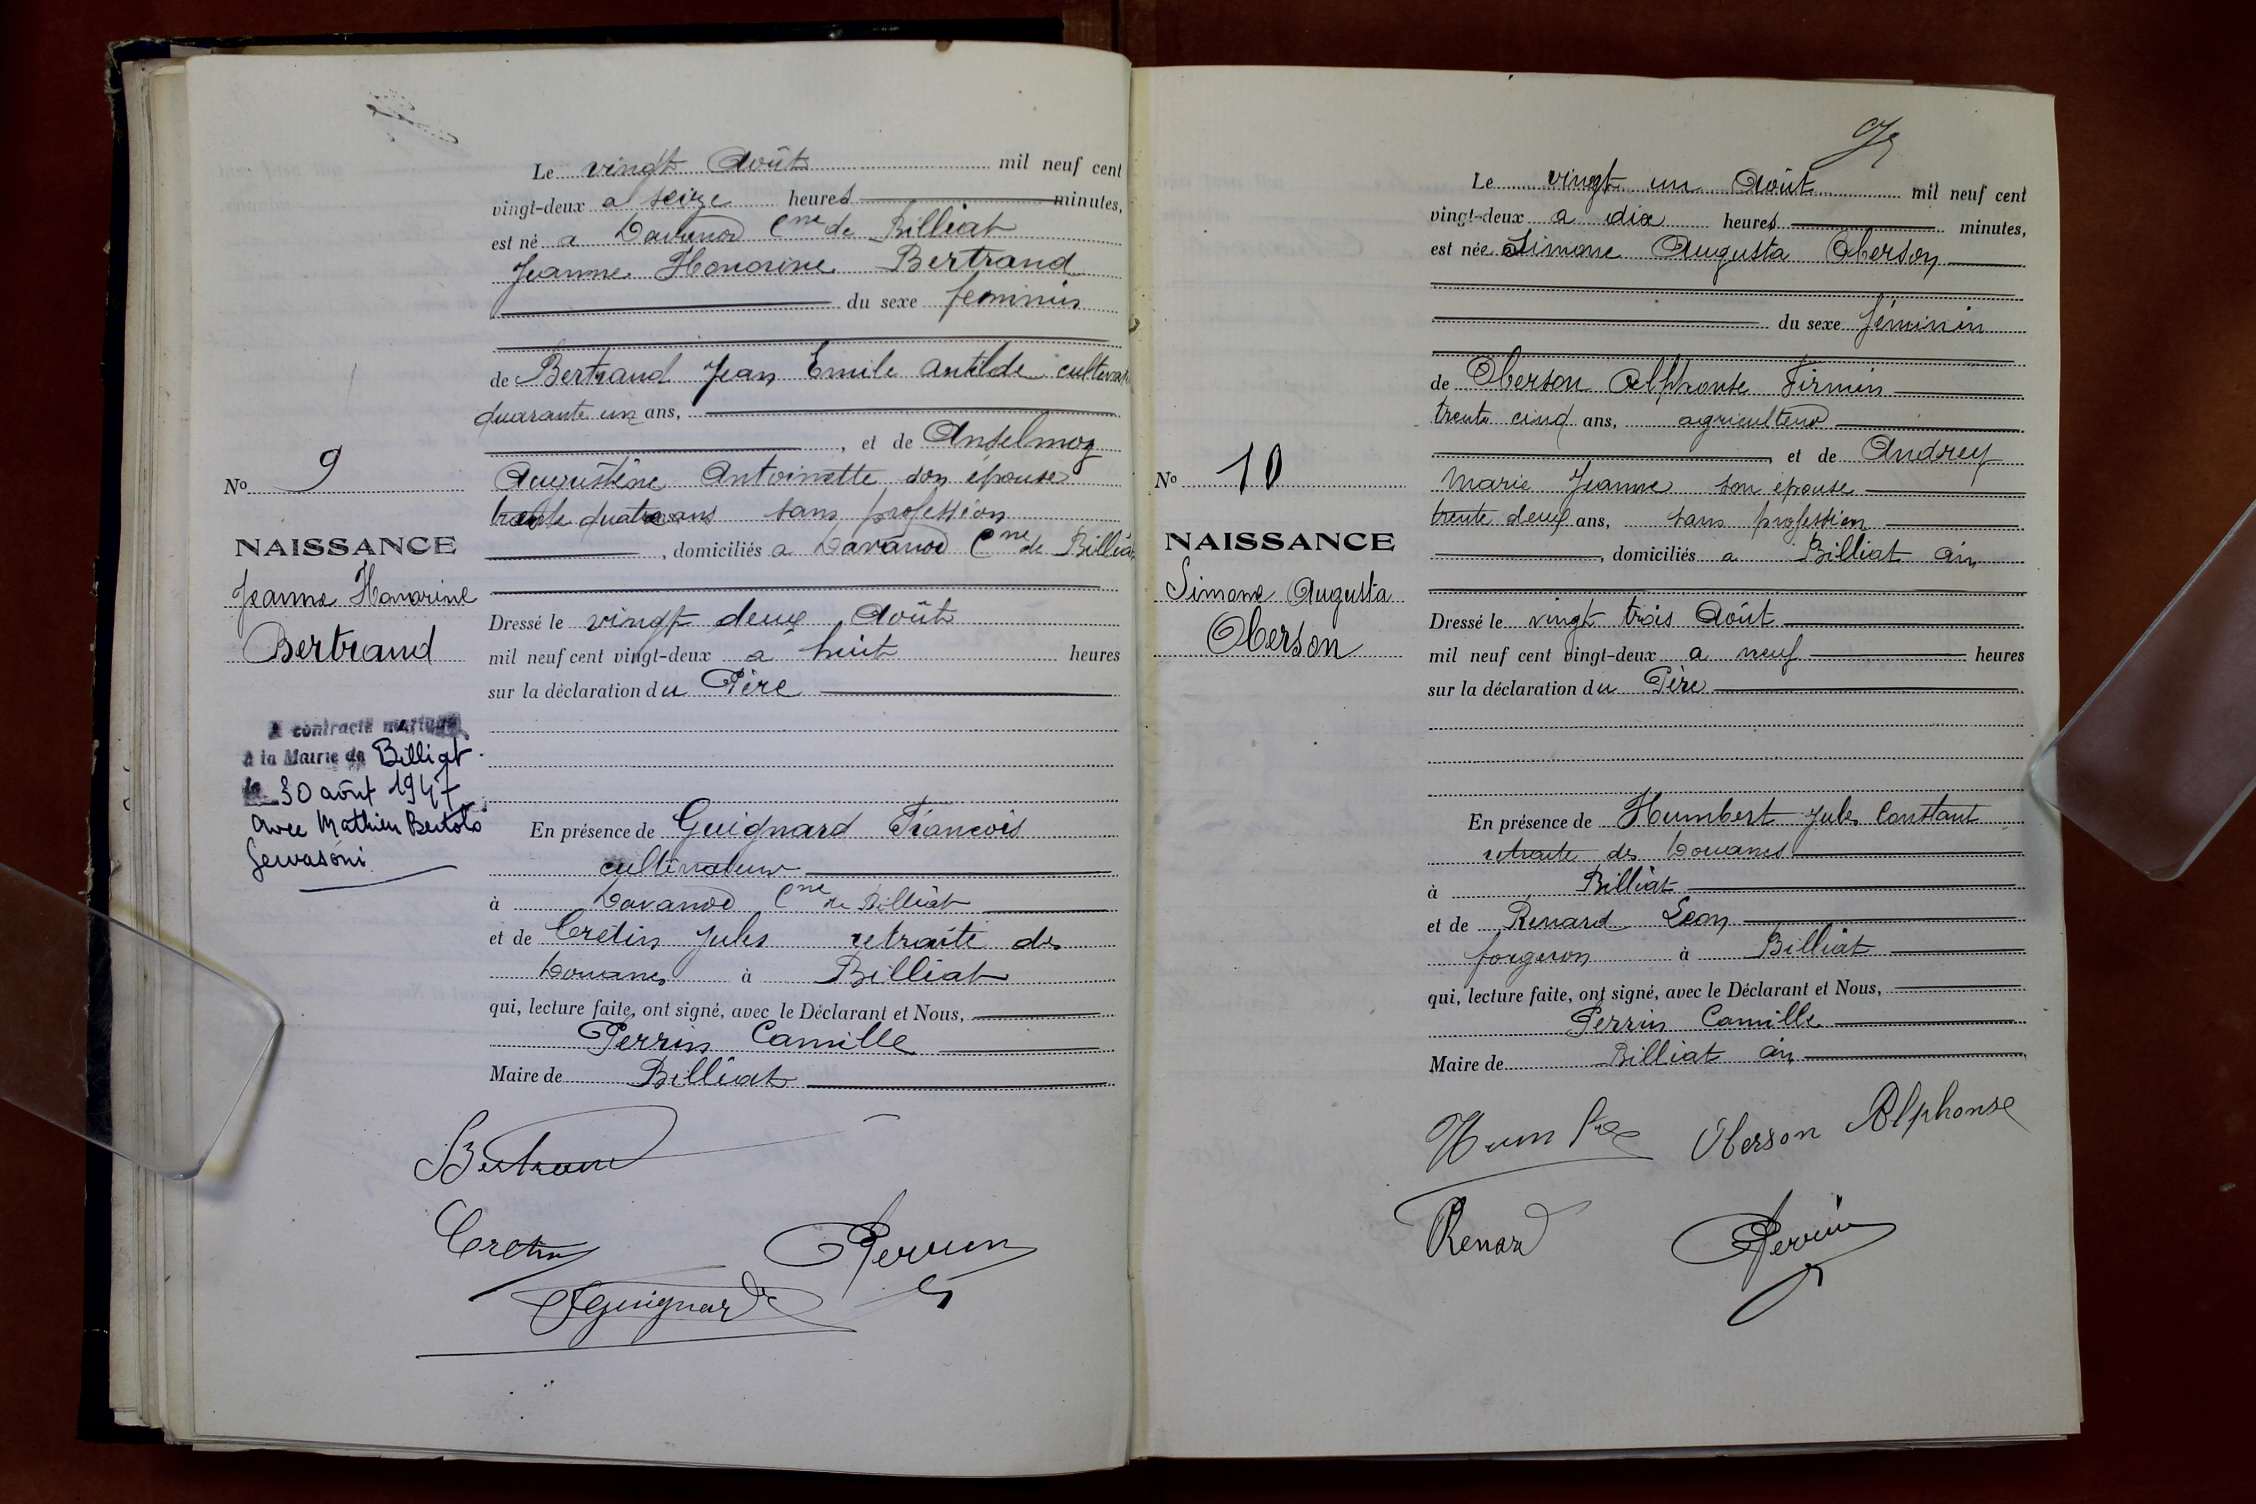 Le vingt Août mil neuf cent
vingt-deux a seize heures minutes,
est né a Davanod Cne de Billiat
Jeanne Honorine Bertrand
du sexe feminin
de Bertrand Jean Emile Antilde cultivateur
quarante un ans,
, et de Anselmoz
Augustine Antoinette son épouse
trente quatre ans sans profession
, domiciliés a Davanod Cne de Billiat
Dressé le vingt deux Août
mil neuf cent vingt-deux a huit heures
sur la déclaration du Père
En présence de Guignard François
cultivateur
à Davanod Cne de Billiat
et de Cretin Jules retraité des
Douanes à Billiat
qui, lecture faite, ont signé, avec le Déclarant et Nous,
Perrin Camille
Maire de Billiat
Bertrand
Cretin Perrin
Guignard
No 9
NAISSANCE
Jeanne Honorine
Bertrand
A contracté mariage
à la Mairie de Billiat
le 30 août 1947
avec Mathieu Bertolo
Gervasoni
Le vingt un Août mil neuf cent
vingt-deux a dix heures minutes,
est née Simone Augusta Oberson
du sexe féminin
de Oberson Alphonse Firmin
trente cinq ans, agriculteur
, et de Andrey
Marie Jeanne son épouse
trente deux ans, sans profession
, domiciliés a Billiat ain
Dressé le vingt trois Août
mil neuf cent vingt-deux a neuf heures
sur la déclaration du Père
En présence de Humbert Jules Constant
retraite des Douanes
à Billiat
et de Renard Leon
forgeron à Billiat
qui, lecture faite, ont signé, avec le Déclarant et Nous,
Perrin Camille
Maire de Billiat ain
Oberson Alphonse
Renard Perrin
No 10
NAISSANCE
Simone Augusta
Oberson